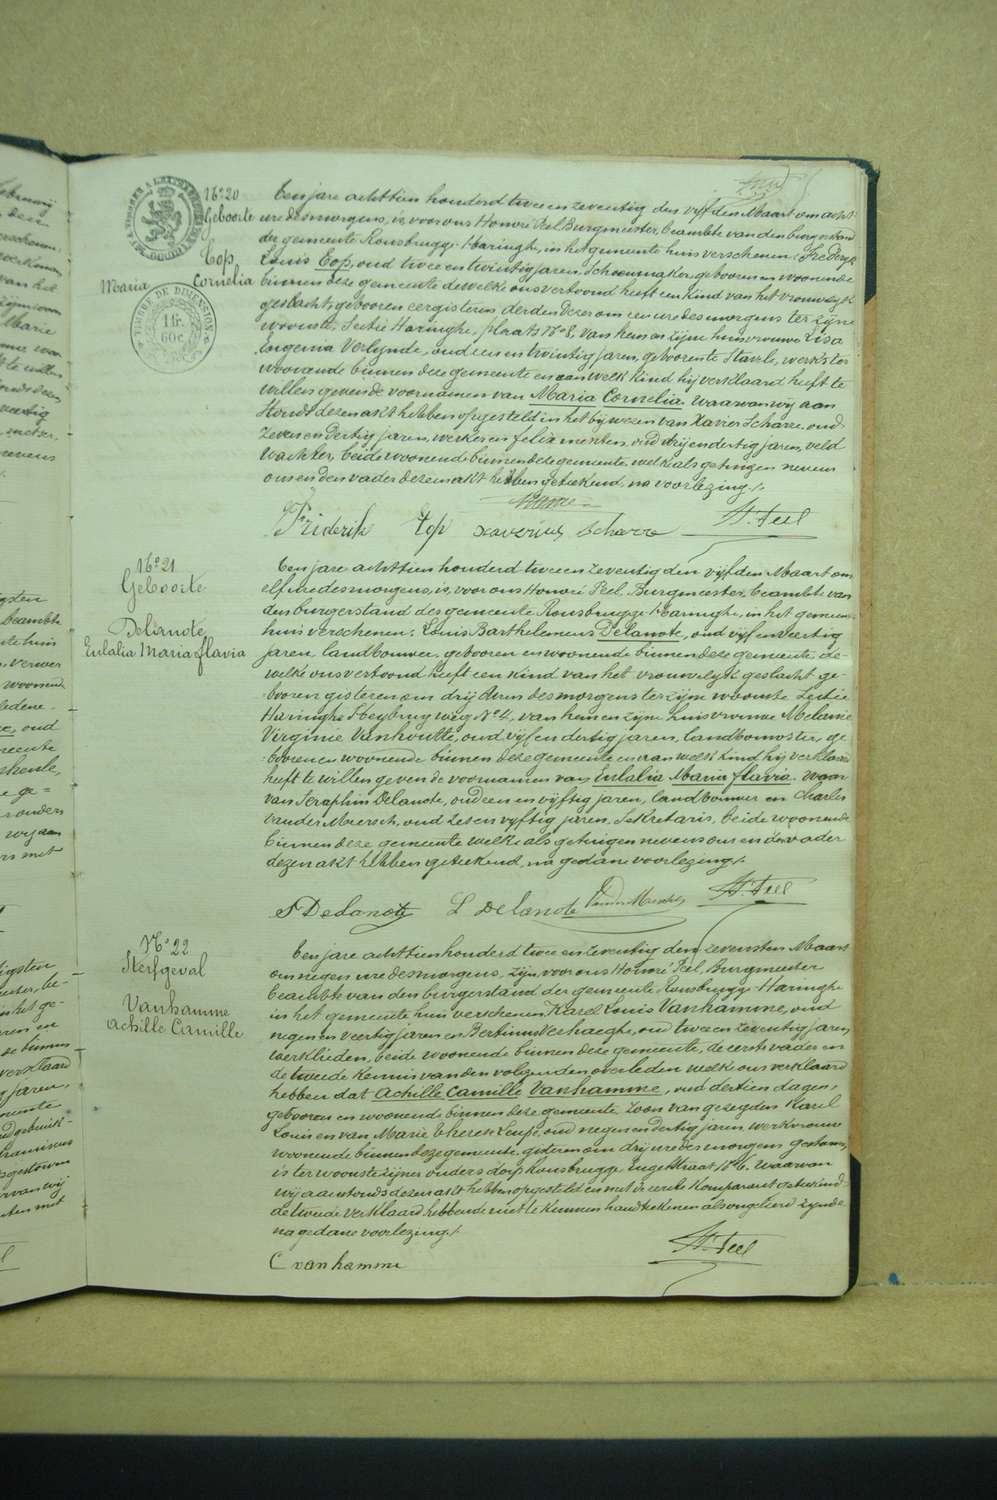 N° 20
Geboorte
Top
Maria Cornelia
TIMBRE DE DIMENSION
1 fr.
60 c.
Een jare achttien honderd twee en zeventig den vijfden Maart om acht
ure des morgens, is voor ons Honoré Peel Burgmeester beambte van den burgerstand
der gemeente Rousbrugge-Haringhe, in het gemeente huis verschenen: Frederyk
Louis Top, oud twee en twintig jaren, Schoenmaker, gebooren en woonende
binnen deze gemeente dewelke ons vertoond heeft een kind van het vrouwelyk
geslacht, gebooren eergisteren derden dezer om een ure des morgens ter zyne
woonste, Sectie Haringhe, plaats N° 8, van hem en zyne huisvrouwe Lisa
Eugenia Verlynde, oud een en twintig jaren, geboorente Stavele, werkster
woonende binnen deze gemeente en aan welk kind hij verklaard heeft te
willen geven de voornamen van Maria Cornelia. Waarvan wij aan
stonds dezen akt hebben opgesteld in het bijwezen van Xavier Scharre oud
zeven en dertig jaren, werker en felix merten, oud drij en dertig jaren, veld
wachter, beide woonende binnen deze gemeente welk als getuigen nevens
ons en den vader dezen akt hebben geteekend, na voorlezing./.
Friderik top xaverius scharre H. Peel
N° 21
Geboorte
Delanote
Eulalia Maria flavia
Een jare achttien honderd twee en zeventig den vijfden Maart om
elf ure des morgens, is, voor ons Honoré Peel, Burgmeester, beambte van
den burgerstand der gemeente Rousbrugge-Haringhe, in het gemeen
huis verschenen: Louis Barthelemeus Delanote, oud vijf en veertig
jaren landbouwer, gebooren en woonende binnen deze gemeente de-
welke ons vertoond heeft een kind van het vrouwelyk geslacht ge-
booren gisteren om drij Uren des morgens ter zyne woonste Sectie
Haringhe Heybrug weg N° 4, van hem en zyne huisvrouwe Melanie
Virginie Vanhoutte, oud vijf en dertig jaren, landbouwster, ge-
booren en woonende binnen deze gemeente en aan welk kind hij verklaard
heeft te willen geven de voornamen van Eulalia Maria flavia. Waar
van Seraphin Delanote, oud een en vijftig jaren, landbouwer en Charles
vander Meersch, oud zes en vyftig jaren, Sekretaris, beide woonende
binnen deze gemeente welke als getuigen nevens ons en den vader
dezen akt hebben geteekend, na gedane voorlezing./.
S Delanote L Delanote VanderMeersch H. Peel
N° 22
Sterfgeval
Vanhamme
Achille Camille
Een jare achttien honderd twee en zeventig den zevensten Maart
om negen ure des morgens, zijn, voor ons Honoré Peel, Burgmeester
beambte van den burgerstand der gemeente Rousbrugge Haringhe
in het gemeente huis verschenen Karel Louis Vanhamme, oud
negen en veertig jaren en Bertinus Verhaeghe, oud twee en zeventig jaren,
werklieden, beide woonende binnen deze gemeente, de eerste vader en
de tweede kennis van den volgenden overleden welke ons verklaard
hebben dat Achille Camille Vanhamme, oud dertien dagen,
gebooren en woonende binnen deze gemeente zoon van gezegden Karel
Louis en van Marie Therese Leupe, oud negen en dertig jaren werkvrouw
woonende binnen deze gemeente, gisteren om drij ure des morgens gestorven,
is ter woonste zijner ouders dorp Rousbrugge Enge Straat N° 6. Waarvan
wij aanstonds dezen akt hebben opgesteld en met de eerste Komparant geteekend
de tweede verklaard hebbende niet te kunnen handteekenen als ongeleerd zynde
na gedane voorlezing./.
C vanhamme H. Peel